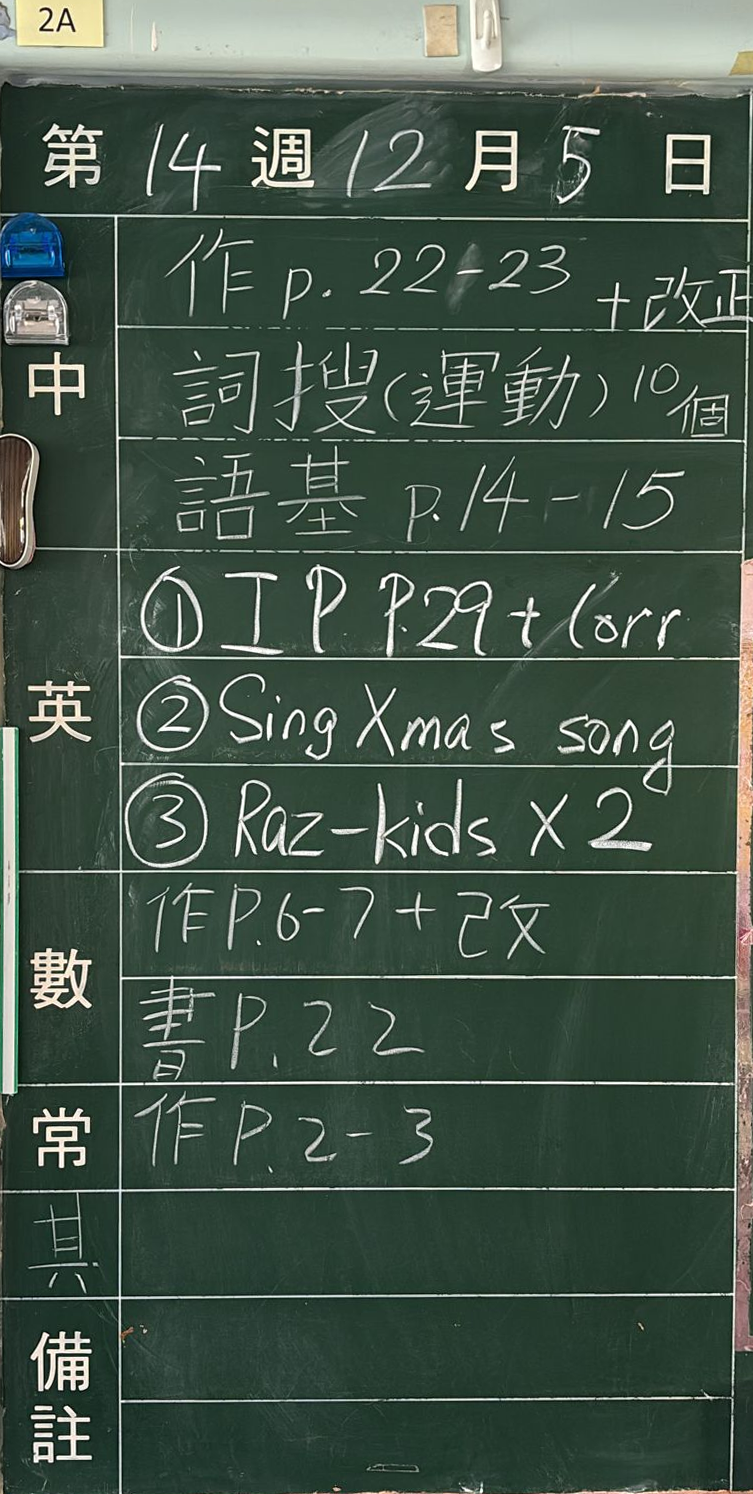 2A
第 14 週 12 月 5 日
中
作 p. 22-23 + 改正
詞搜(運動) 10個
語基 p.14-15
英
① IP P.29 + Corr
② Sing Xmas song
③ Raz-kids X 2
數
作P.6-7+改
書P.22
常
作P.2-3
其
備註